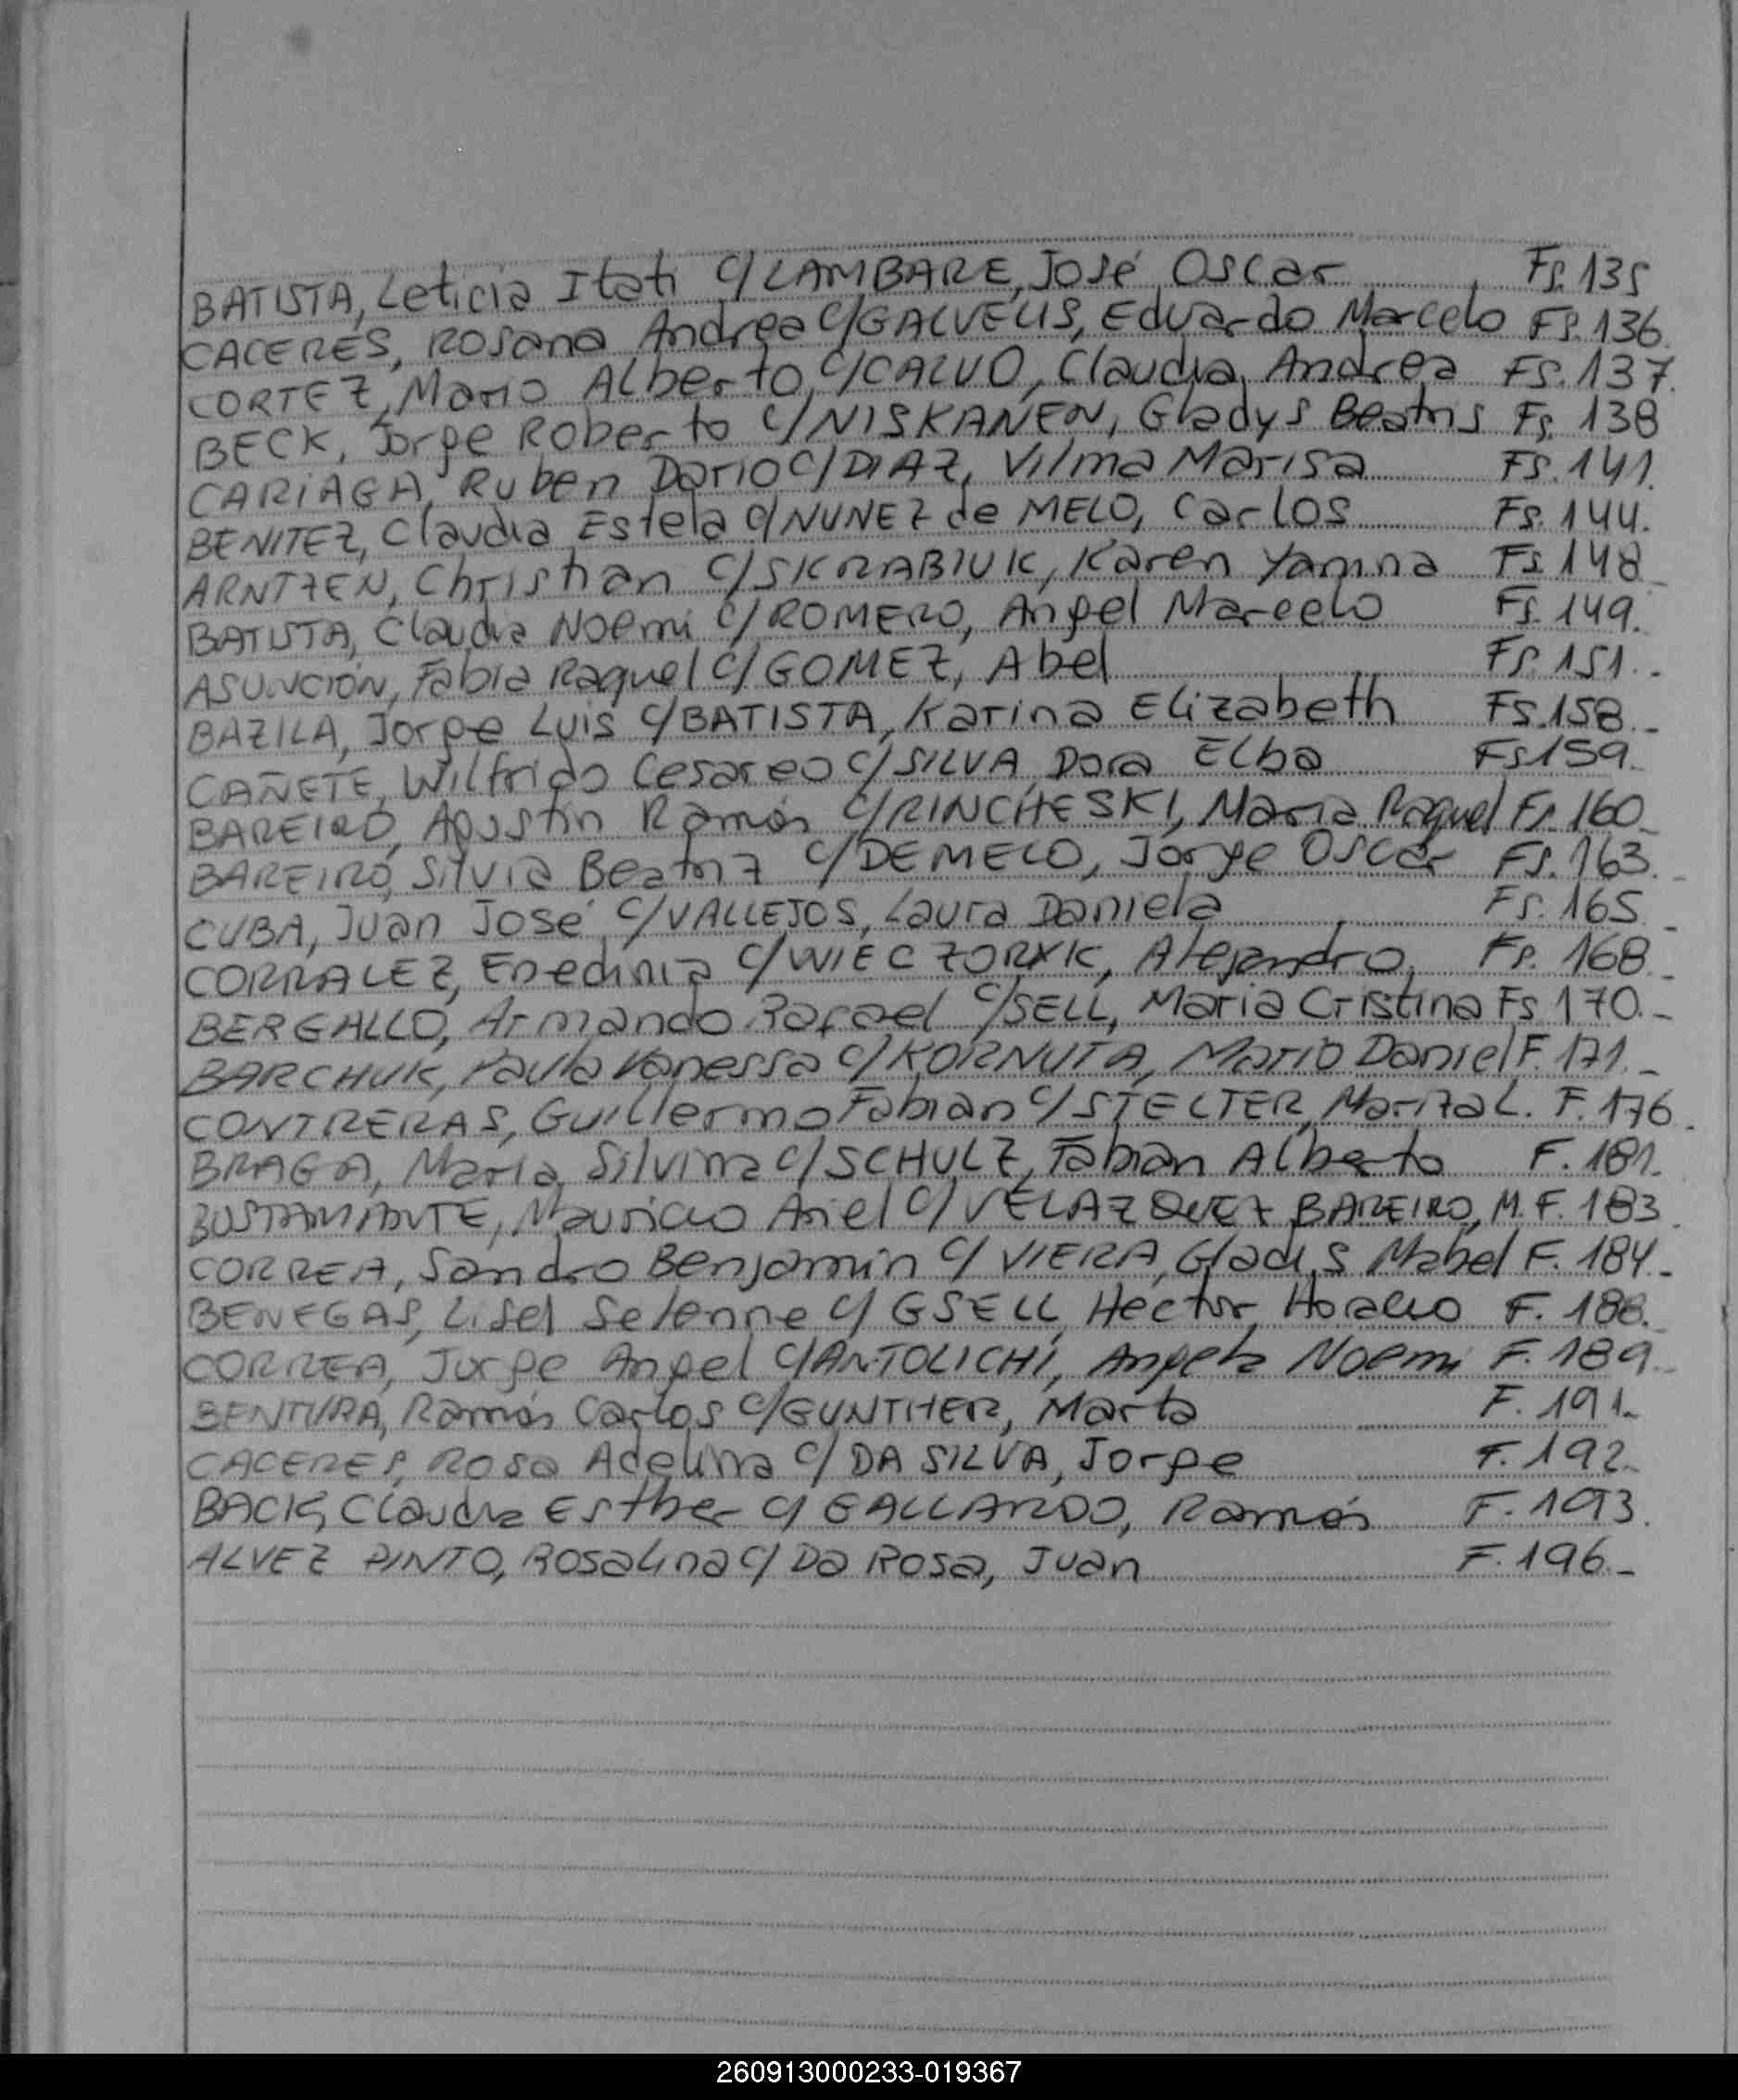 BATISTA, Leticia Itati C/ LAMBARE, José Oscar Fs. 135
CACERES, Rosana Andrea C/GALVELIS, Eduardo Marcelo Fs. 136
CORTEZ, Mario Alberto, C/CALVO, Claudia Andrea Fs. 137.
BECK, Jorge Roberto C/NISKANEN, Gladys Beatris Fs. 138
CARIAGA, Ruben Dario C/DIAZ, Vilma Marisa Fs. 141.
BENITEZ, Claudia Estela C/NUNEZ de MELO, Carlos Fs. 144.
ARNTZEN, Christian C/SKRABIUK, Karen Yanina Fs. 148
BATISTA, Claudia Noemi C/ROMERO, Angel Marcelo Fs. 149.
ASUNCIÓN, Fabia Raquel C/GOMEZ, Abel Fs. 151.-
BAZILA, Jorge Luis C/BATISTA, Karina Elizabeth Fs. 158.-
CAÑETE, Wilfrido Cesareo C/SILVA, Dora Elba Fs 159.-
BAREIRO, Agustin Ramón C/RINCHESKI, Maria Raquel Fs. 160.-
BAREIRO, Silvia Beatriz C/DE MELO, Jorge Oscar Fs. 163.-
CUBA, Juan José C/VALLEJOS, Laura Daniela Fs. 165.-
CORRALEZ, Enedinia C/WIECZORYK, Alejandro, Fs. 168.-
BERGALLO, Armando Rafael C/SELL, Maria Cristina Fs 170.-
BARCHUK, Paula Vanessa C/KORNUTA, Mario Daniel F. 171.-
CONTRERAS, Guillermo Fabian C/STELTER, Mariza L. F. 176.-
BRAGA, María Silvina C/SCHULZ, Fabian Alberto F. 181.-
BUSTAMANTE, Mauricio Ariel C/VELAZQUEZ BAREIRO, M. F. 183.
CORREA, Sandro Benjamin C/ VIERA, Gladis Mabel F. 184.-
BENEGAS, Lisel Selenne C/ GSELL, Hector Horacio F. 188.-
CORREA, Jorge Angel C/ANTOLICHI, Angela Noemi F. 189.-
BENTURA, Ramón Carlos C/GUNTHER, Marta F. 191.-
CACERES, Rosa Adelina C/ DA SILVA, Jorge F. 192.-
BACK, Claudia Esther C/ GALLARDO, Ramón F. 193.
ALVEZ PINTO, Rosalina C/ Da Rosa, Juan F. 196.-
260913000233-019367